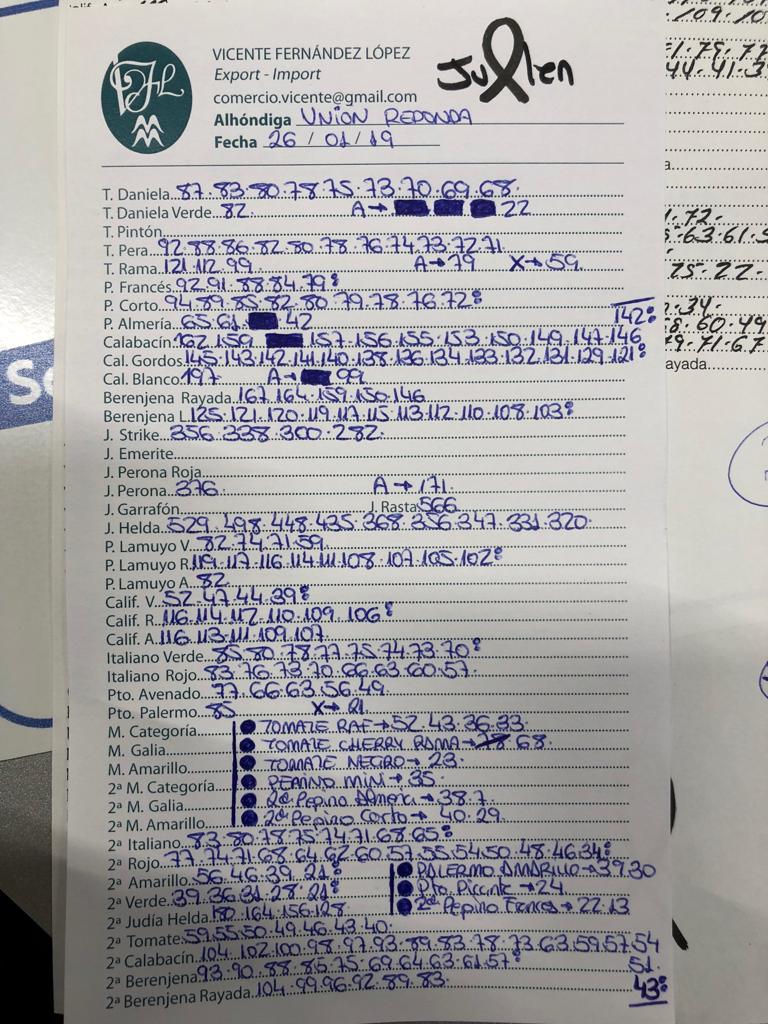 VICENTE FERNÁNDEZ LÓPEZ
Export - Import
comercio.vicente@gmail.com
Julen
Alhóndiga UNION REDONDA
Fecha 26 / 01 / 19
T. Daniela 87.83.80.78.75.73.70.69.68.
T. Daniela Verde 82. A→ 22
T. Pintón
T. Pera 92.88.86.82.80.78.76.74.73.72.71
T. Rama 121.112.99 A→79 X→59
P. Francés 92.91.88.84.79:
P. Corto 94.89.85.82.80.79.78.76.72:
P. Almería 65.61. 42 142:
Calabacín 162.159. 157.156.155.153.150.149.147.146
Cal. Gordos 145.143.142.141.140.138.136.134.133.132.131.129.121:
Cal. Blanco 197 A→ 99
Berenjena Rayada 167.164.159.150.146
Berenjena L 125.121.120.119.117.115.113.112.110.108.103:
J. Strike 356.338.300.282.
J. Emerite
J. Perona Roja
J. Perona 376 A→171.
J. Garrafón J. Rasta 566
J. Helda 529.498.448.435.368.356.347.331.320.
P. Lamuyo V. 82.74.71.59
P. Lamuyo R. 119.117.116.114.111.108.107.105.102:
P. Lamuyo A. 82
Calif. V. 52.47.44.39:
Calif. R. 116.114.112.110.109.106:
Calif. A. 116.113.111.109.107
Italiano Verde 85.80.78.77.75.74.73.70:
Italiano Rojo 83.76.73.70.66.63.60.57.
Pto. Avenado 77.66.63.56.49
Pto. Palermo 85 X→21
M. Categoría • TOMATE RAF→52.43.36.33
M. Galia • TOMATE CHERRY RAMA→ 68
M. Amarillo • TOMATE NEGRO→23.
2ª M. Categoría • PEPINO MINI→35
2ª M. Galia • 2ª Pepino Almeria→38.7.
2ª M. Amarillo • 2ª Pepino Corto→40.29.
2ª Italiano 83.80.78.75.74.71.68.65:
2ª Rojo 77.74.71.68.64.62.60.57.55.54.50.48.46.34:
2ª Amarillo 56.46.39.21: • PALERMO AMARILLO→39.30
2ª Verde 39.36.31.28.21: • Pto. Picante→24
2ª Judía Helda 180.164.156.128 • 2ª Pepino Frances→22.13
2ª Tomate 59.55.50.49.46.43.40.
2ª Calabacín 104.102.100.98.97.93.89.83.78.73.63.59.57.54
2ª Berenjena 93.90.88.85.75.69.64.63.61.57: 51.
2ª Berenjena Rayada 104.99.96.92.89.83. 43: